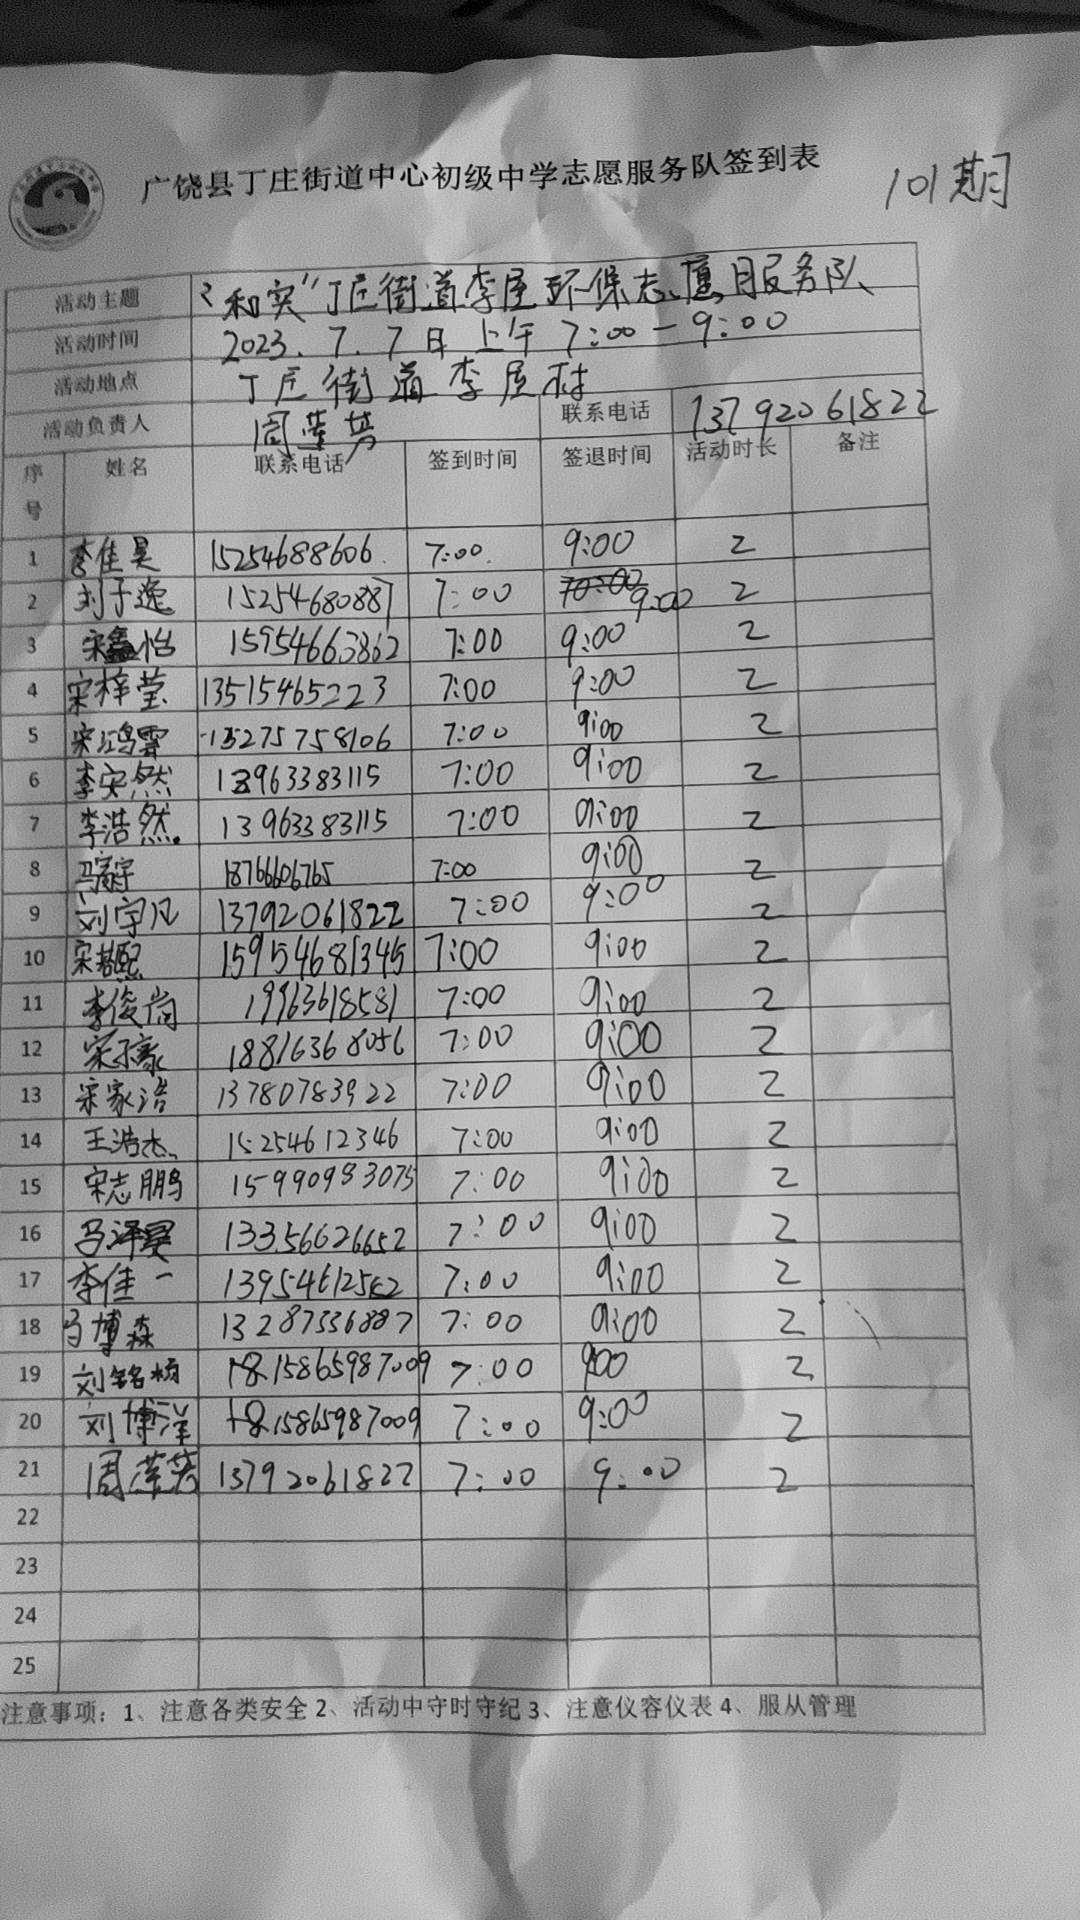 广饶县丁庄街道中心初级中学志愿服务队签到表
101期
活动主题 "和实"丁庄街道李屋环保志愿服务队
活动时间 2023.7.7日 上午 7:00-9:00
活动地点 丁庄街道李屋村
活动负责人 周莲芳 联系电话 13792061822
序号 姓名 联系电话 签到时间 签退时间 活动时长 备注
1 李佳昊 15254688606 7:00 9:00 2
2 刘子逸 15254680887 7:00 9:00 2
3 宋鑫怡 15954663862 7:00 9:00 2
4 宋梓莹 13515465223 7:00 9:00 2
5 宋鸿霄 15275758106 7:00 9:00 2
6 李安然 13963383115 7:00 9:00 2
7 李浩然 13963383115 7:00 9:00 2
8 18766606765 7:00 9:00 2
9 刘宇凡 13792061822 7:00 9:00 2
10 15954681345 7:00 9:00 2
11 李俊尚 19963618581 7:00 9:00 2
12 宋子豪 18816368056 7:00 9:00 2
13 宋家浩 13780783922 7:00 9:00 2
14 王浩杰 15254612346 7:00 9:00 2
15 宋志鹏 15990983075 7:00 9:00 2
16 马泽昊 13356626652 7:00 9:00 2
17 李佳一 13954612562 7:00 9:00 2
18 马博森 13287336887 7:00 9:00 2
19 刘铭杨 15865987009 7:00 900 2
20 刘博洋 15865987009 7:00 9:00 2
21 周莲芳 13792061822 7:00 9:00 2
22
23
24
25
注意事项：1、注意各类安全 2、活动中守时守纪 3、注意仪容仪表 4、服从管理